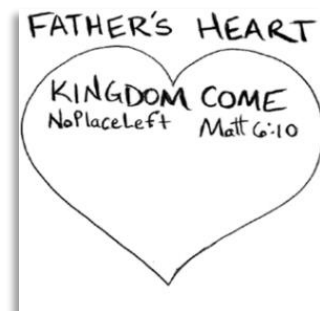 FATHER'S HEART
KINGDOM COME
NoPlaceLeft Matt 6:10